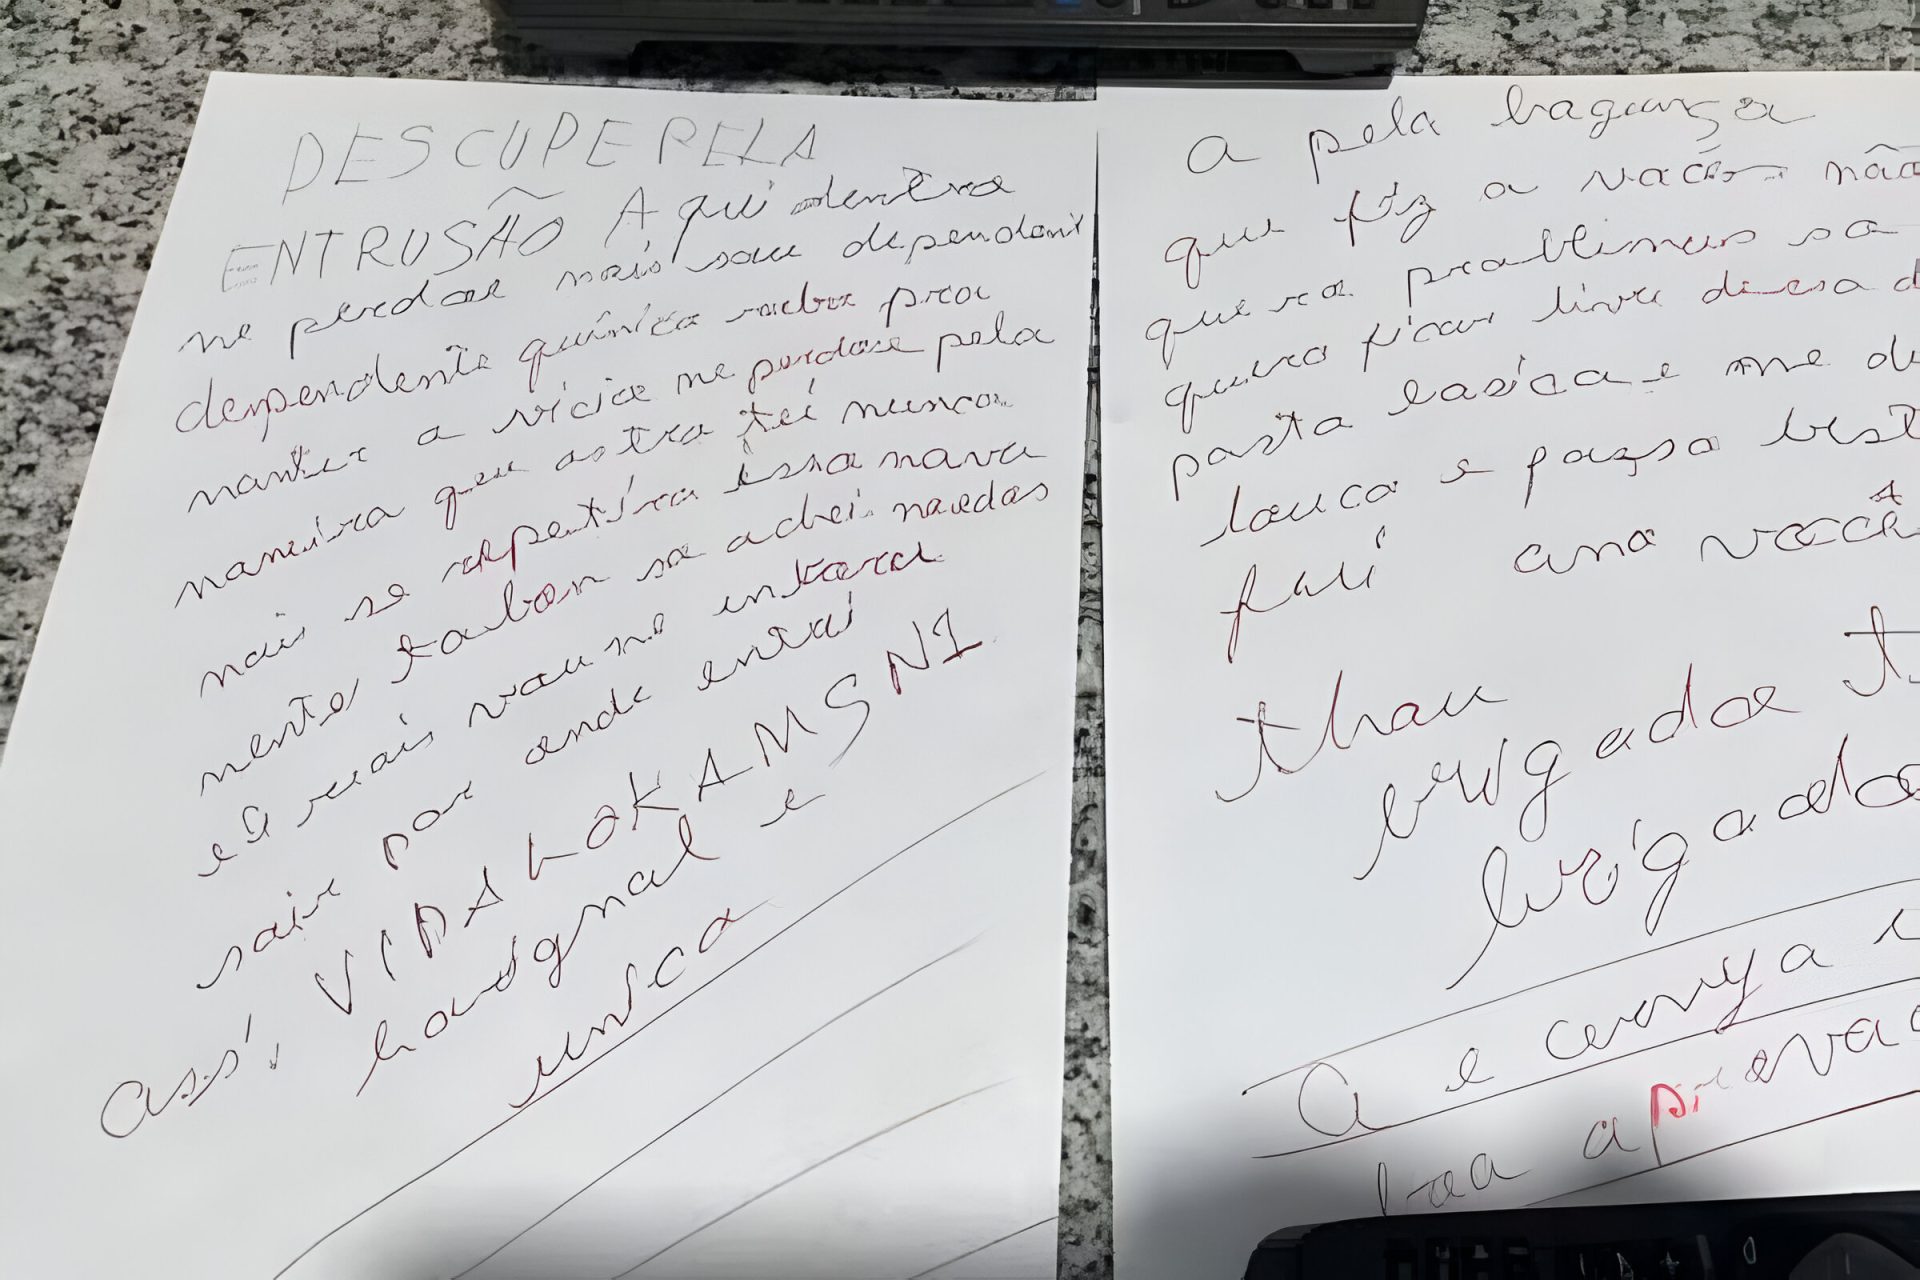 DESCUPE PELA
ENTRUSÃO Aqui dentro
me perdoe mais sou dependent
dependente quimico robo pra
manter o vicio me perdoe pela
maneira que astra tei nunca
mais se repetira essa nava
mente tabom so achei moedas
e é mais vou me intará
sair por onde entrei
ass', VIDA LOKA MS N1
horignal e
unico
a pela bagunça
que fiz a você não
quero problimas so
quero ficar livre dessa d
pasta basica e me de
louco e passo best
fui ano você
thau
brigadoe
brigado
a e cerveja
boa aprova